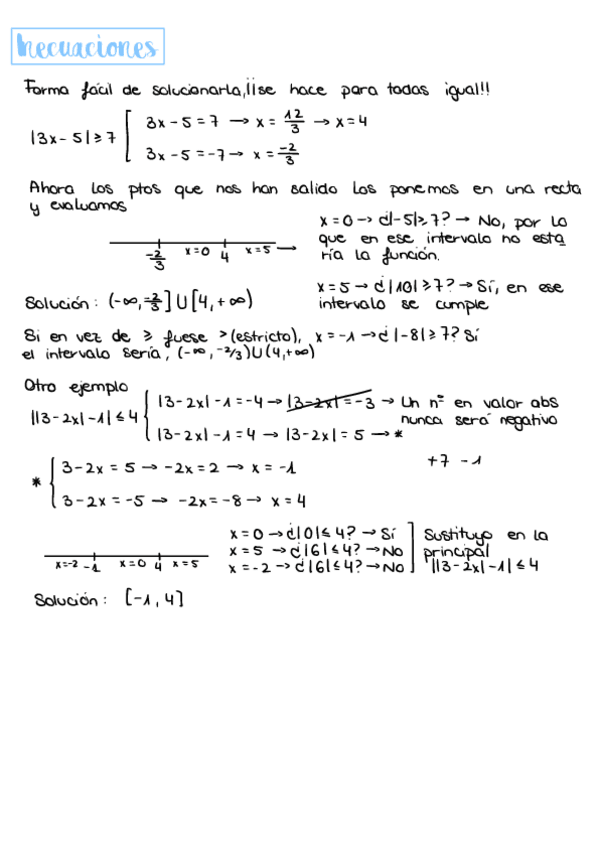 Inecuaciones
Forma fácil de solucionarla, ¡¡se hace para todas igual!!
|3x - 5| ≥ 7
3x - 5 = 7 → x = 12/3 → x = 4
3x - 5 = -7 → x = -2/3
Ahora los ptos que nos han salido los ponemos en una recta
y evaluamos
-2/3 x = 0 4 x = 5
x = 0 → ¿|-5| ≥ 7? → No, por lo
que en ese intervalo no esta
ría la función.
x = 5 → ¿|10| ≥ 7? → Sí, en ese
intervalo se cumple
Solución: (-∞, -2/3] U [4, +∞)
Si en vez de ≥ fuese > (estricto), x = -1 → ¿|-8| ≥ 7? Sí
el intervalo sería, (-∞, -2/3) U (4, +∞)
Otro ejemplo
||3 - 2x| - 1| ≤ 4
|3 - 2x| - 1 = -4 → |3 - 2x| = -3 → Un nº en valor abs
nunca será negativo
|3 - 2x| - 1 = 4 → |3 - 2x| = 5 → *
+7 -1
*
3 - 2x = 5 → -2x = 2 → x = -1
3 - 2x = -5 → -2x = -8 → x = 4
x = -2 -1 x = 0 4 x = 5
x = 0 → ¿|0| ≤ 4? → Sí
x = 5 → ¿|6| ≤ 4? → No
x = -2 → ¿|6| ≤ 4? → No
Sustituyo en la
principal
||3 - 2x| - 1| ≤ 4
Solución: [-1, 4]